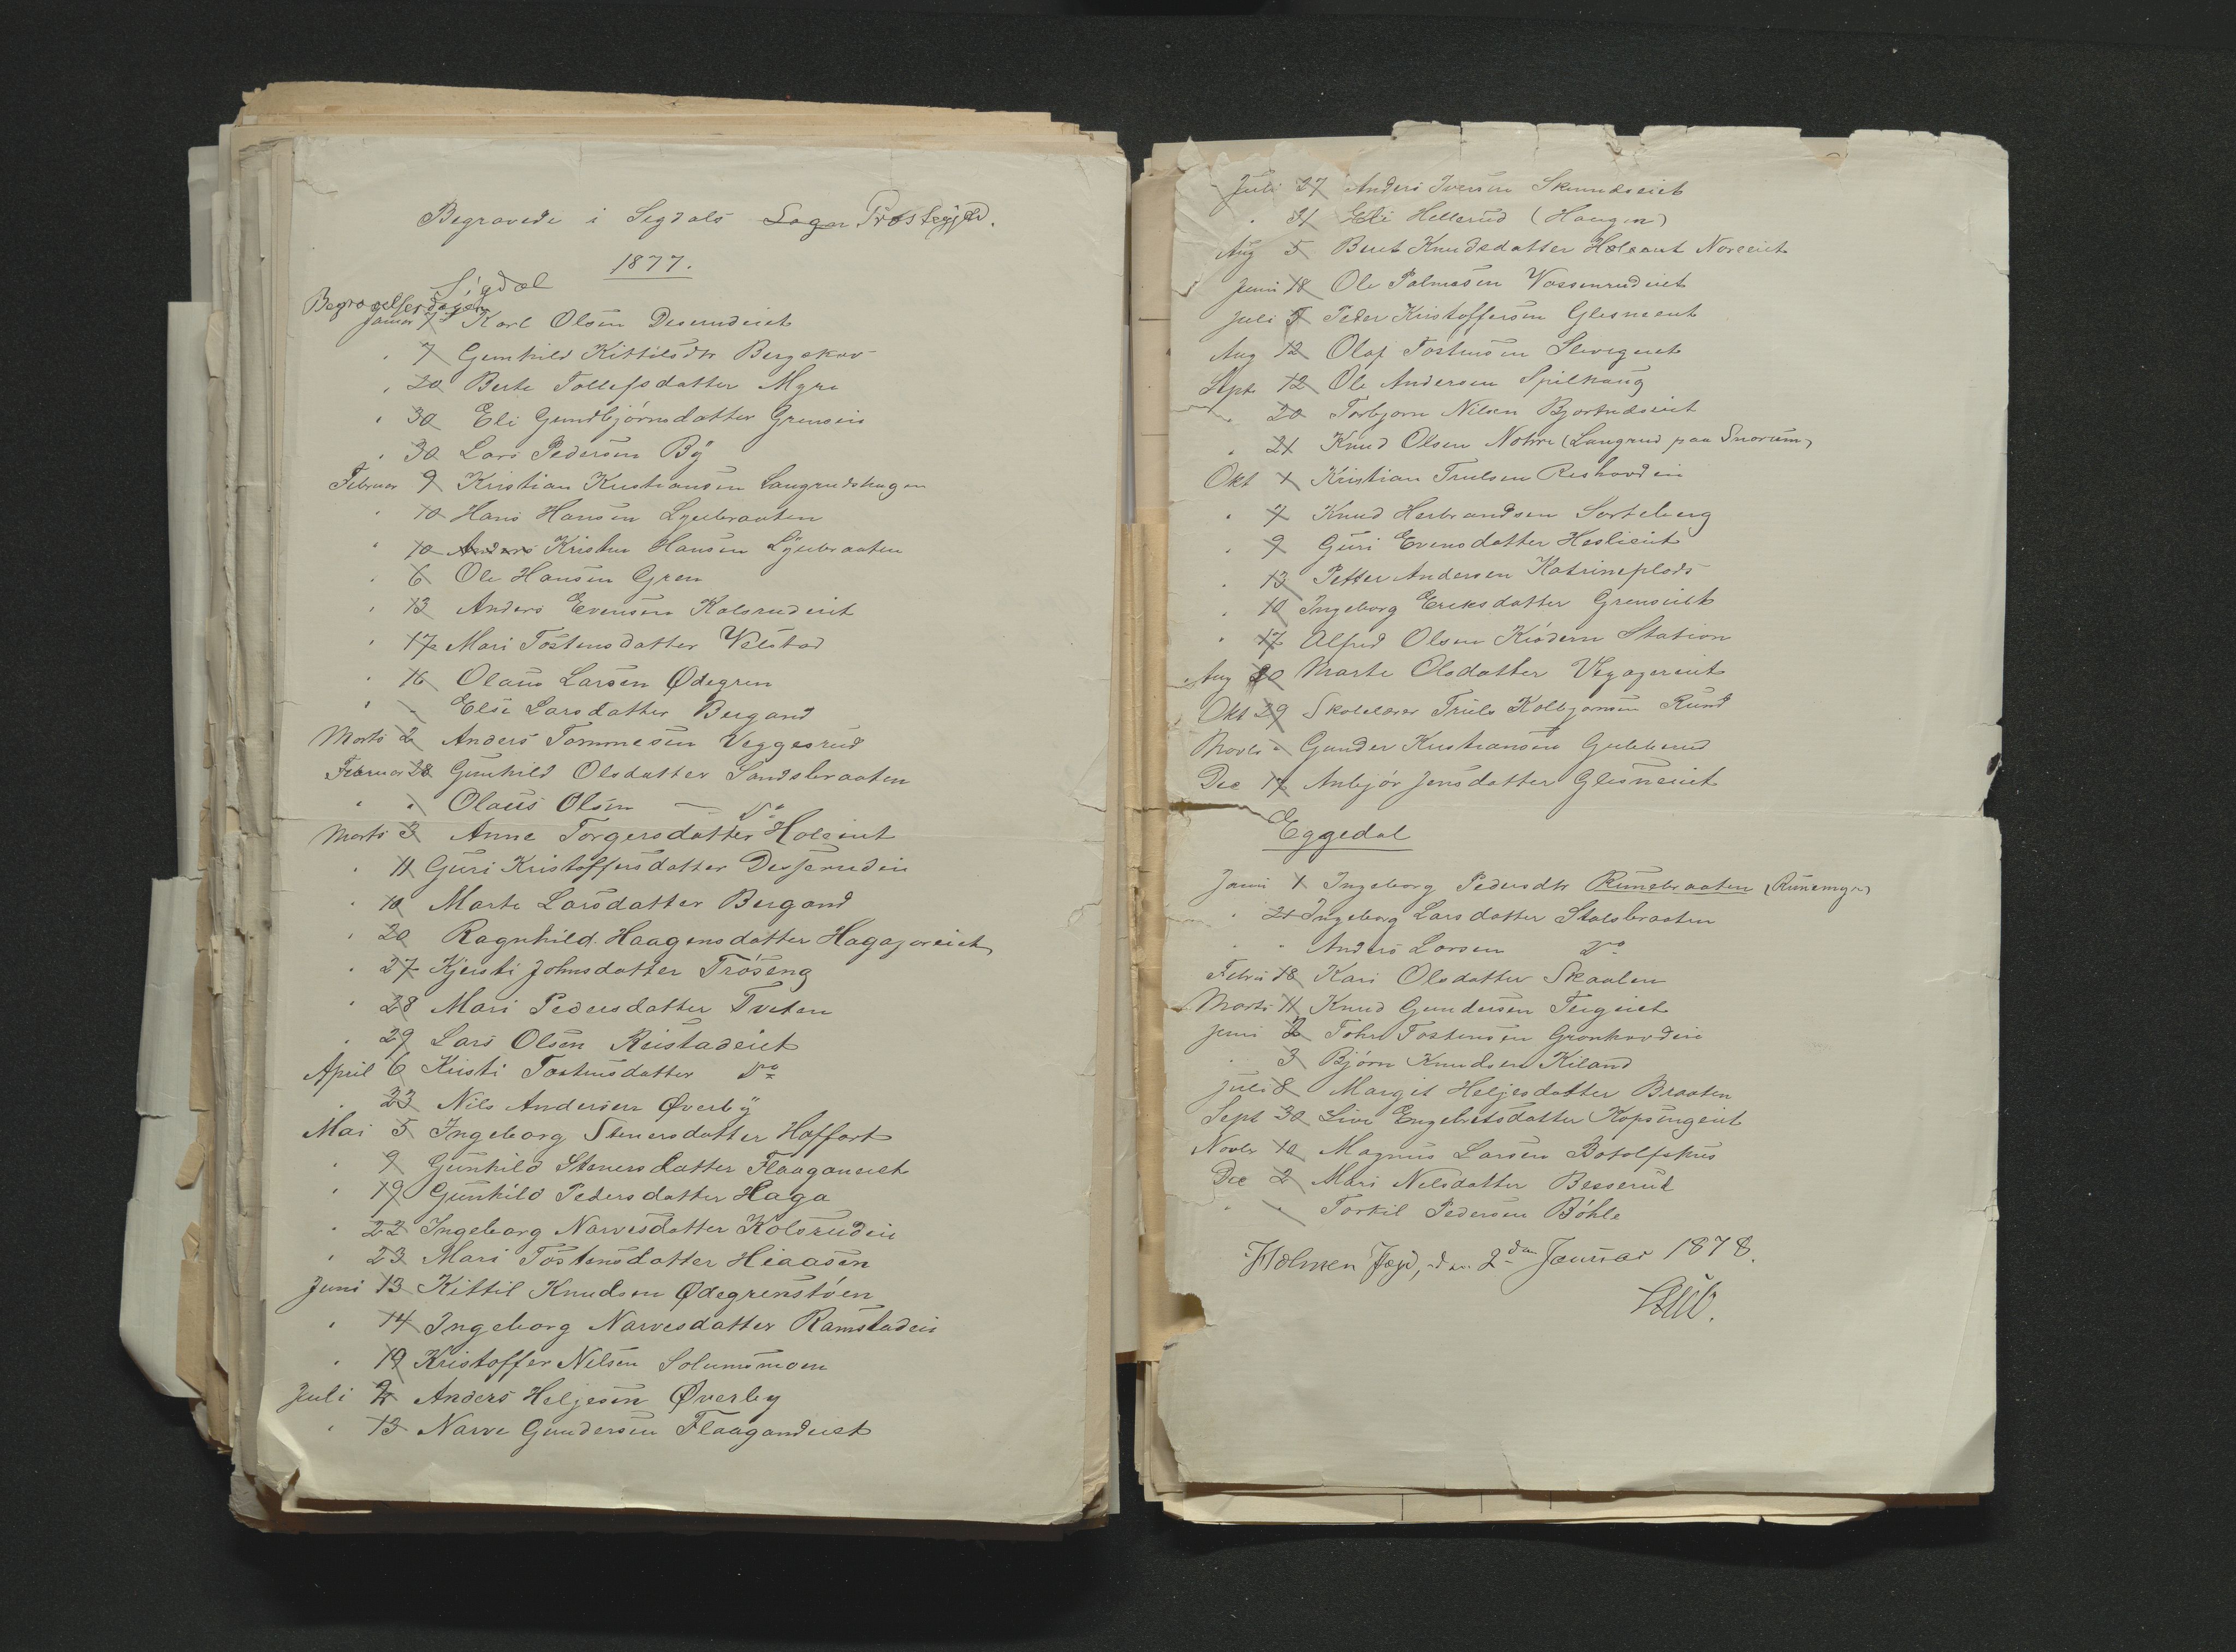 Begravede i Sigdals Sogn Præstegjæld.
1877.
Sigdal
Begravelsesdagen
Januar 7 Karl Olsen Deserudeiet
" 7 Gunhild Kittilsdtr Bergskav
" 20 Berte Tollefsdatter Myre
" 30 Eli Gundbjörnsdatter Grenseie
" 30 Lars Pedersen By
Februar 9 Kristian Kristiansen Langrudshagen
" 10 Hans Hansen Lyebraaten
" 10 Anders Kristen Hansen Lyebraaten
" 6 Ole Hansen Gren
" 13 Anders Evensen Kolsrudeiet
" 17 Mari Tostensdatter Velstad
" 16 Olaus Larsen Ødegren
" " Else Larsdatter Bergand
Marts 2 Anders Tommesen Veggesrud
Februar 28 Gunhild Olsdatter Sandsbraaten
" " Olaus Olsen — Do
Marts 3 Anne Torgersdatter Holeiet
" 11 Guri Kristoffersdatter Desserudeie
" 10 Marte Larsdatter Bergand
" 20 Ragnhild Haagensdatter Hagajoreiet
" 27 Kjersti Johnsdatter Tröseng
" 28 Mari Pedersdatter Tveten
" 29 Lars Olsen Reistadeiet
April 6 Kristi Tostensdatter Do
" 23 Nils Andersen Øverby
Mai 5 Ingeborg Stenersdatter Haffort
" 9 Gunhild Stenersdatter Flaaganeiet
" 19 Gunhild Pedersdatter Haga
" 22 Ingeborg Narvesdatter Kolsrudeie
" 23 Mari Tostensdatter Hiaasen
Juni 13 Kittil Knudsen Ødegrenstöen
" 14 Ingeborg Narvesdatter Ramstadeie
" 19 Kristoffer Nilsen Solumsmoen
Juli 2 Anders Heljesen Øverby
" 13 Narve Gundersen Flaagandeiet
Juli 27 Anders Iversen Skaundseiet
" 31 Eli Hellerud (Haugen)
Aug 5 Berit Knudsdatter Holeant Noreeiet
Juni 18 Ole Palmesen Vassenrudeiet
Juli 5 Peder Kristoffersen Glesneent
Aug 12 Olaf Tostensen
Sept 12 Ole Andersen Spilhaug
" 20 Torbjorn Nilsen Bjortudseiet
" 21 Knud Olsen Nohre (Langrud paa Snorum)
Okt 1 Kristian Trulsen Reshovdeie
" 7 Knud Herbrandsen Sorteberg
" 9 Guri Evensdatter Heslieiet
" 13 Petter Andersen Katrineplads
" 10 Ingeborg Eriksdatter Grenseiet
" 17 Alfred Olsen Kröderen Station
Aug 20 Marte Olsdatter
Okt 29 Skolelærer Truls Kolbjornsen Rund
Novbr " Gunder Kristiansen Gubberud
Dec 17 Anbjör Jensdatter Glesneiet
Eggedal
Januar 1 Ingeborg Pedersdtr Runebraaten (Runemyr)
" 21 Ingeborg Larsdatter Stalsbraaten
" " Anders Larsen Do
Februar 18 Kari Olsdatter Skaalen
Marts 11 Knud Gundersen Teigeiet
Juni 2 Tohr Tostensen Gronhovdeie
" 3 Björn Knudsen Kiland
Juli 8 Margit Heljesdatter Braaten
Sept 30 Live Engebretsdatter Kopsengeiet
Novbr 10 Magnus Larsen Botolfshus
Dec 2 Mari Nilsdatter Besserud
" " Torkil Pedersen Böhle
Holmen Sigd, den 2den Januar 1878.